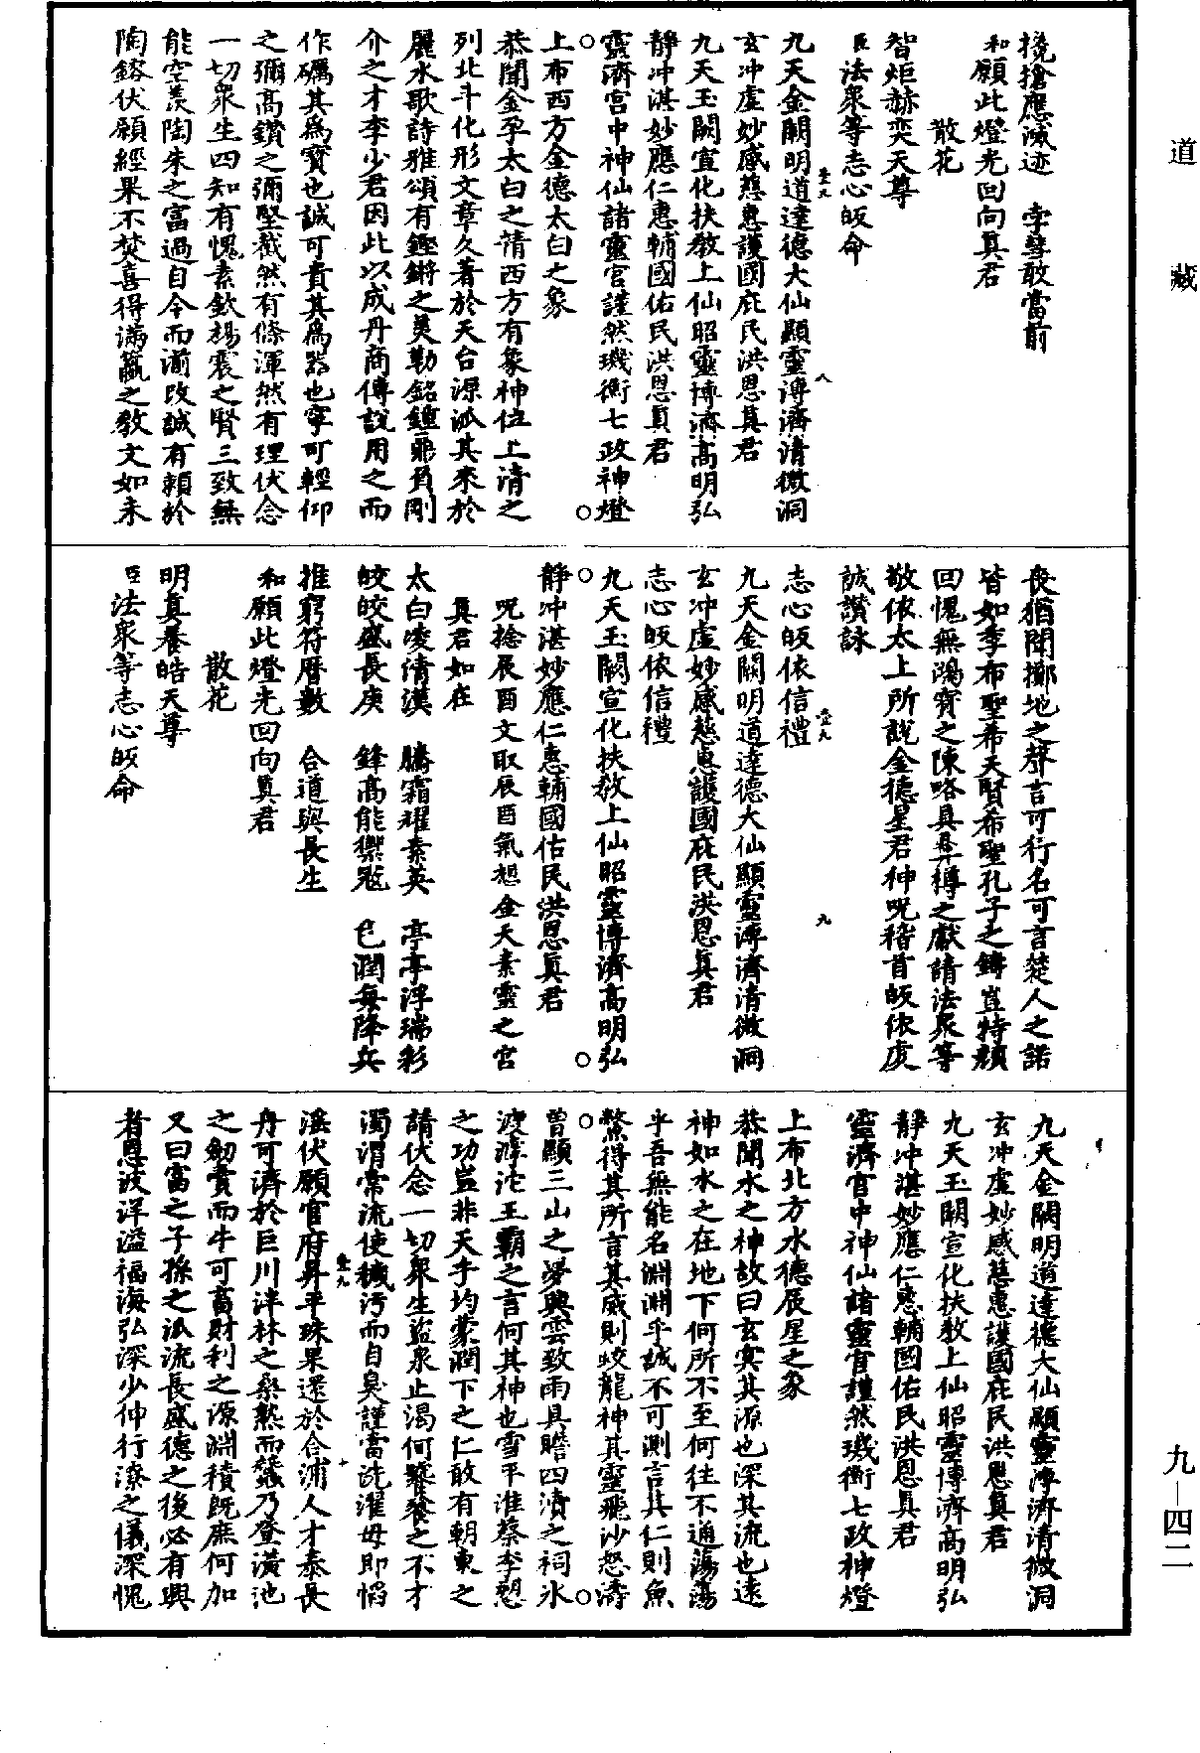 道藏
欃搶應滅迹　孛彗敢當前
和願此燈光回向真君
散花
智炬赫奕天尊
臣法衆等志心皈命
九天金闕明道達德大仙顯靈溥濟清微洞
玄冲虛妙感慈惠護國庇民洪恩真君
九天玉闕宣化扶教上仙昭靈博濟高明弘
靜冲湛妙應仁惠輔國佑民洪恩真君
靈濟宮中神仙諸靈官謹然璣衡七政神燈
上布西方金德太白之象
恭聞金孕太白之精西方有象神位上清之
列北斗化形文章久著於天台源派其來於
麗水歌詩雅頌有鏗鏘之美勒銘鍾鼎負剛
介之才李少君因此以成丹商傅說用之而
作礪其爲寳也誠可貴其爲器也寧可輕仰
之彌高鑽之彌堅截然有條渾然有理伏念
一切衆生四知有愧素欽楊震之賢三致無
能空羨陶朱之富過自今而湔改誠有頼於
陶鎔伏願經果不焚喜得滿籯之教文如未
喪猶聞擲地之聲言可行名可言楚人之諾
皆如季布聖希天賢希聖孔子之鑄豈特顔
回愧無鴻寳之陳略具犧樽之獻請法衆等
敬依太上所說金德星君神呪稽首皈依虔
誠讃詠
志心皈依信禮
九天金闕明道達德大仙顯靈溥濟清微洞
玄冲虛妙感慈惠護國庇民洪恩真君
志心皈依信禮
九天玉闕宣化扶教上仙昭靈博濟高明弘
靜冲湛妙應仁惠輔國佑民洪恩真君
呪捻辰酉文取辰酉氣想金天素靈之宮
真君如在
太白凌清漢　騰霜耀素英　亭亭浮瑞彩
皎皎盛長庚　鋒高能禦寇　色潤每降兵
推窮符曆數　合道與長生
和願此燈光回向真君
散花
明真養皓天尊
臣法衆等志心皈命
九天金闕明道達德大仙顯靈溥濟清微洞
玄冲虛妙感慈惠護國庇民洪恩真君
九天玉闕宣化扶教上仙昭靈博濟高明弘
靜冲湛妙應仁惠輔國佑民洪恩真君
靈濟宮中神仙諸靈官謹然璣衡七政神燈
上布北方水德辰星之象
恭聞水之神故曰玄冥其源也深其流也遠
神如水之在地下何所不至何往不通蕩蕩
乎吾無能名淵淵乎誠不可測言其仁則魚
鱉得其所言其威則蛟龍神其靈飛沙怒濤
曾顯三山之夢興雲致雨具瞻四瀆之祠氷
渡滹沱王霸之言何其神也雪平淮蔡李愬
之功豈非天乎均蒙潤下之仁敢有朝東之
請伏念一切衆生盜泉止渴何饕餮之不才
濁渭常流使穢污而自臭謹當洗濯毋即慆
滛伏願官府昇平珠果還於合浦人才泰長
舟可濟於巨川泮林之桑熟而蠶乃登潢池
之劔賣而牛可畜財利之源淵積旣庶何加
又曰富之子孫之派流長盛德之後必有興
者恩波洋溢福海弘深少伸行潦之儀深愧
九—四二